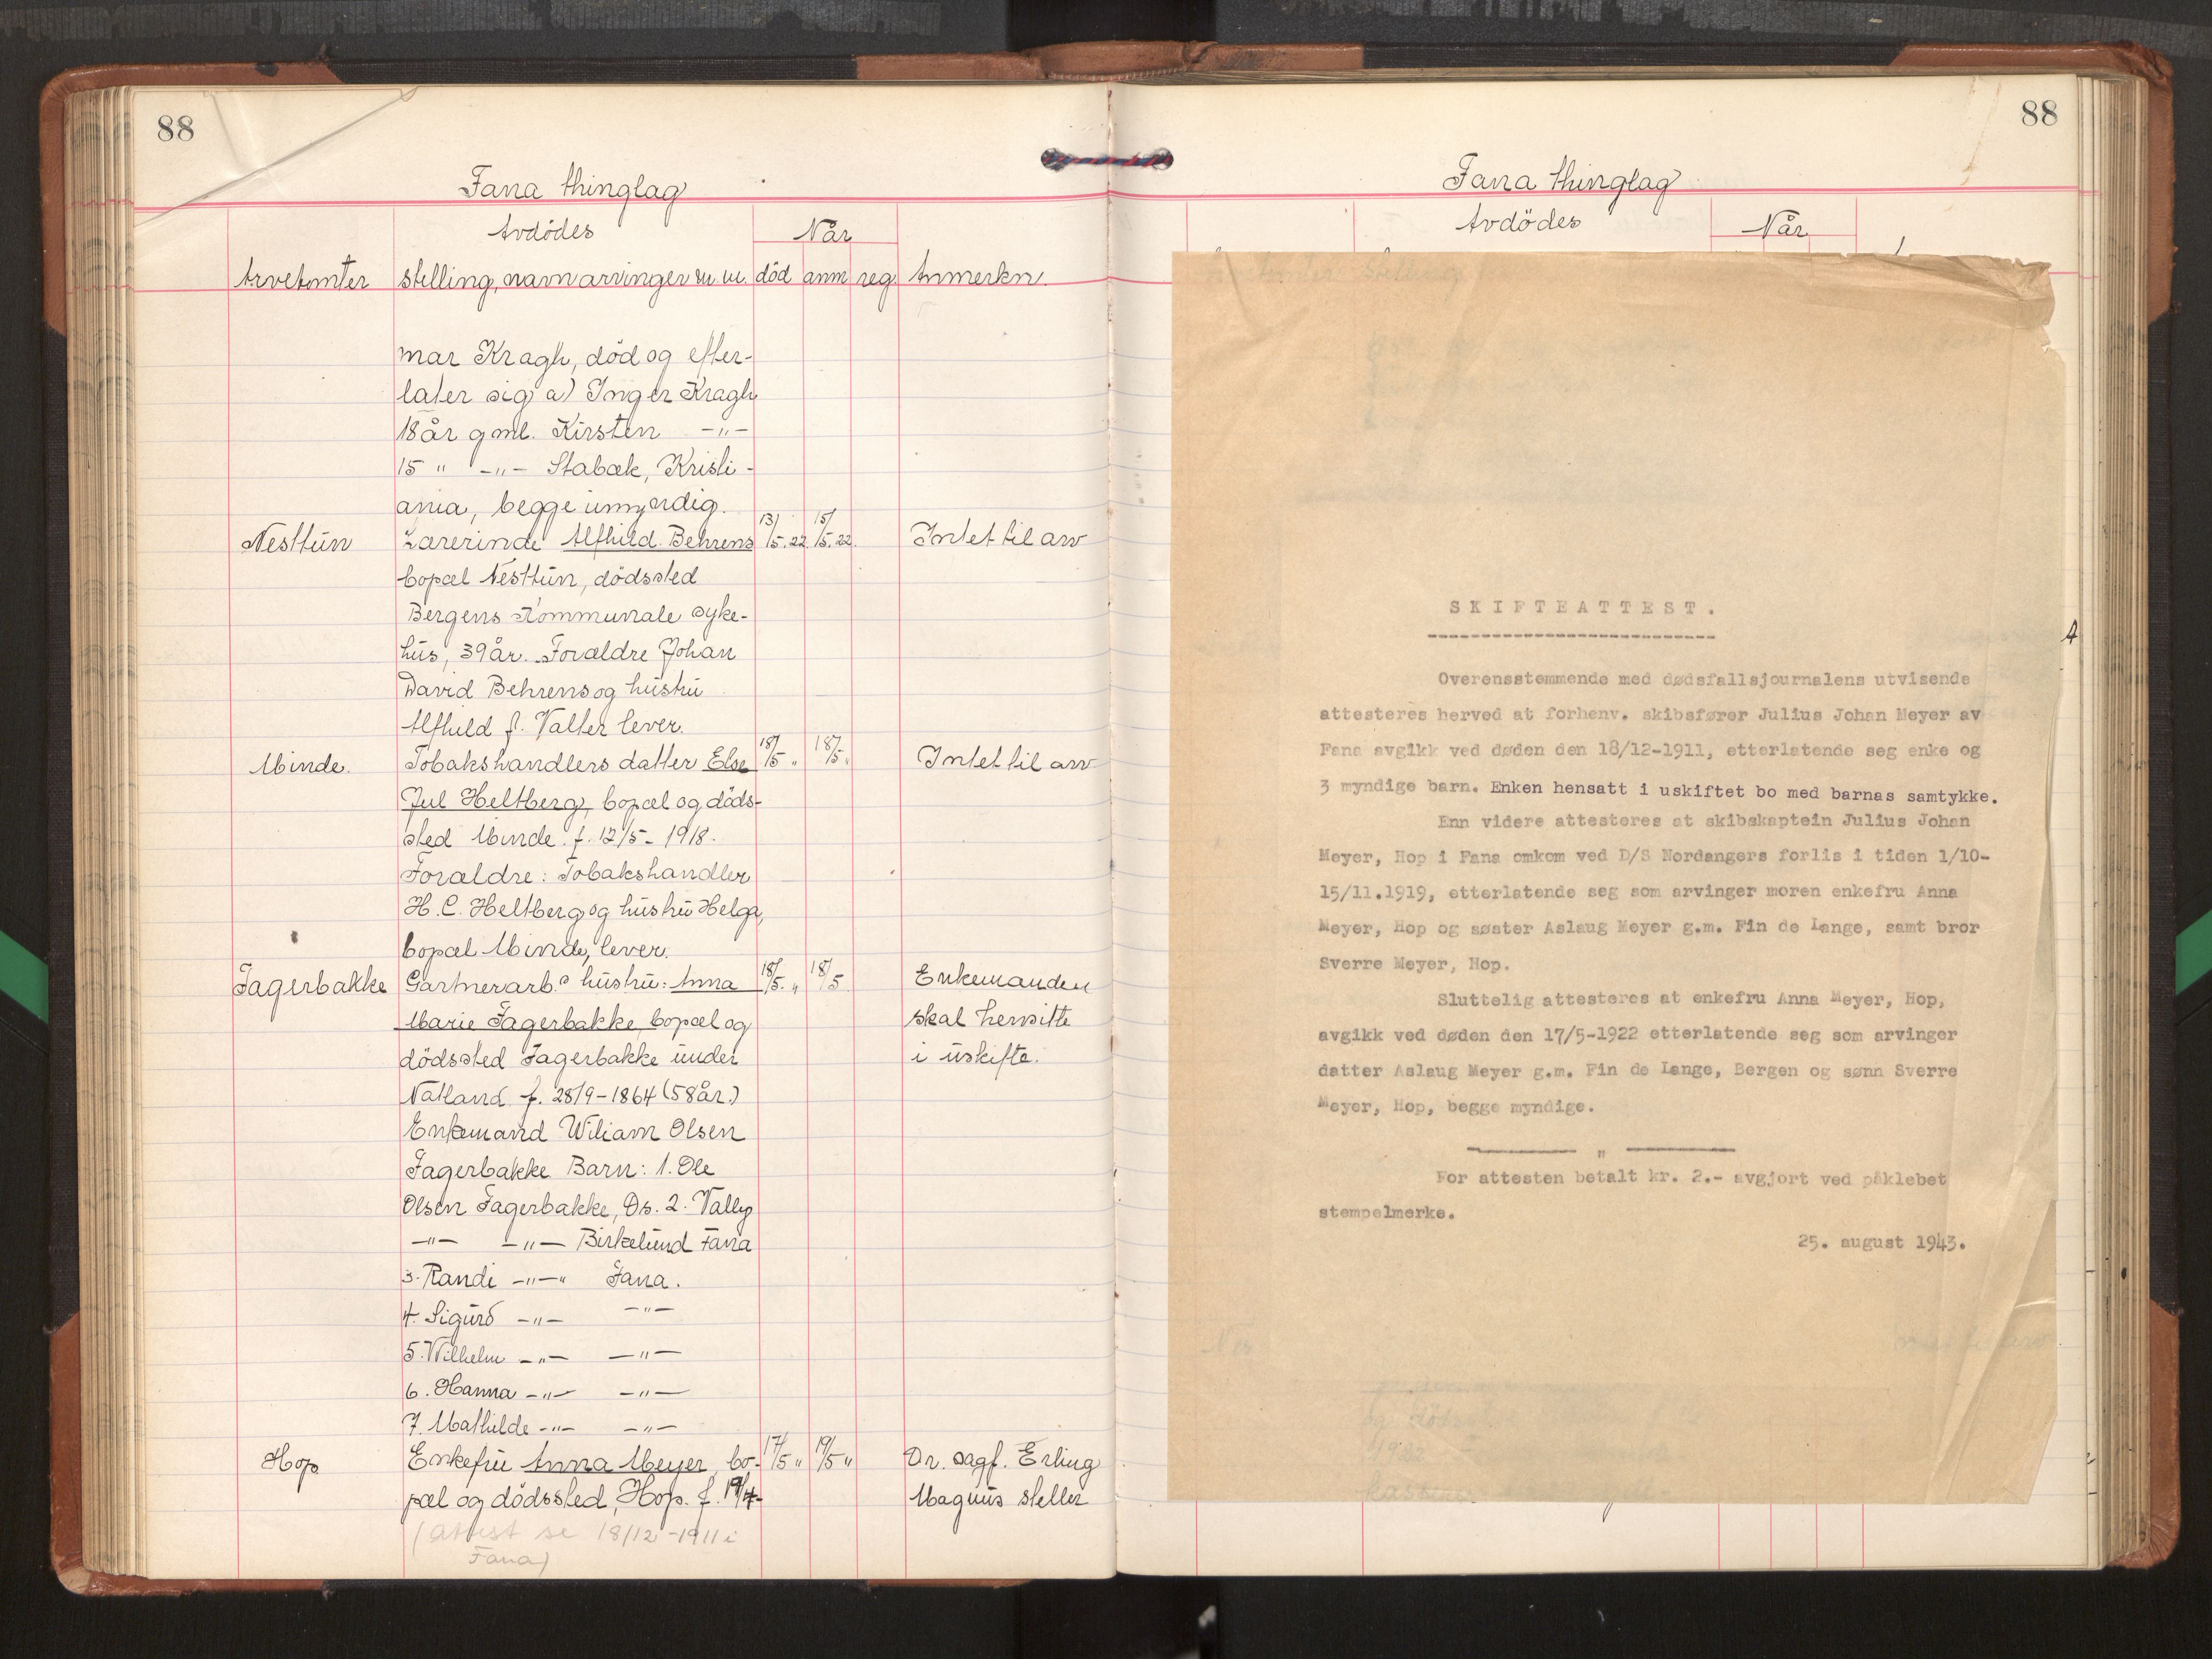 88
Fana thinglag
Avdödes
Når
Arvetomter stelling, navn arvinger m.m. död anm reg. Anmerkn.
mar Kragh, död og efter-
later sig a) Inger Kragh
18 år gml. Kirsten -"-
15 " -"- Stabæk, Kristi-
ania, begge umyndig.
Nesttun Lærerinde Alfhild Behrens 13/5.22 15/5.22. Intet til arv
bopæl Nesttun, dödssted
Bergens Kommunale syke-
hus, 39 år. Forældre Johan
David Behrens og hustru
Alfhild f. Valter lever.
Minde. Tobakshandlers datter Else 18/5 " 18/5 " Intet til arv
Jul Heltberg, bopæl og döds-
sted Minde f. 12/5-1918.
Forældre: Tobakshandler
H. C. Heltberg og hustru Helga,
bopæl Minde, lever.
Fagerbakke Gartnerarb.s hustru: Anna 18/5. " 18/5 Enkemanden
Marie Fagerbakke, bopæl og skal hensitte
dödssted Fagerbakke under i uskifte.
Natland f. 28/9-1864 (58 år.)
Enkemand Wiliam Olsen
Fagerbakke Barn: 1. Ole
Olsen Fagerbakke, Os. 2. Vally
-"- -"- Birkelund Fana
3. Randi -"-" Fana.
4. Sigurd -"- -"-
5. Wilhelm -"- -"-
6. Hanna -"- -"-
7. Mathilde -"- -"-
Hop Enkefru Anna Meyer, bo- 17/5 " 19/5 " Or. sagf. Erling
pæl og dödssted, Hop. f. 19/4- Magnus steller
(attest se 18/12-1911 i
Fana)
88
Fana thinglag
Avdödes
Når
SKIFTEATTEST.
Overensstemmende med dødsfallsjournalens utvisende
attesteres herved at forhenv. skibsfører Julius Johan Meyer av
Fana avgikk ved døden den 18/12-1911, etterlatende seg enke og
3 myndige barn. Enken hensatt i uskiftet bo med barnas samtykke.
Enn videre attesteres at skibskaptein Julius Johan
Meyer, Hop i Fana omkom ved D/S Nordangers forlis i tiden 1/10-
15/11.1919, etterlatende seg som arvinger moren enkefru Anna
Meyer, Hop og søster Aslaug Meyer g.m. Fin de Lange, samt bror
Sverre Meyer, Hop.
Sluttelig attesteres at enkefru Anna Meyer, Hop,
avgikk ved døden den 17/5-1922 etterlatende seg som arvinger
datter Aslaug Meyer g.m. Fin de Lange, Bergen og sønn Sverre
Meyer, Hop, begge myndige.
"
For attesten betalt kr. 2.- avgjort ved påklebet
stempelmerke.
25. august 1943.